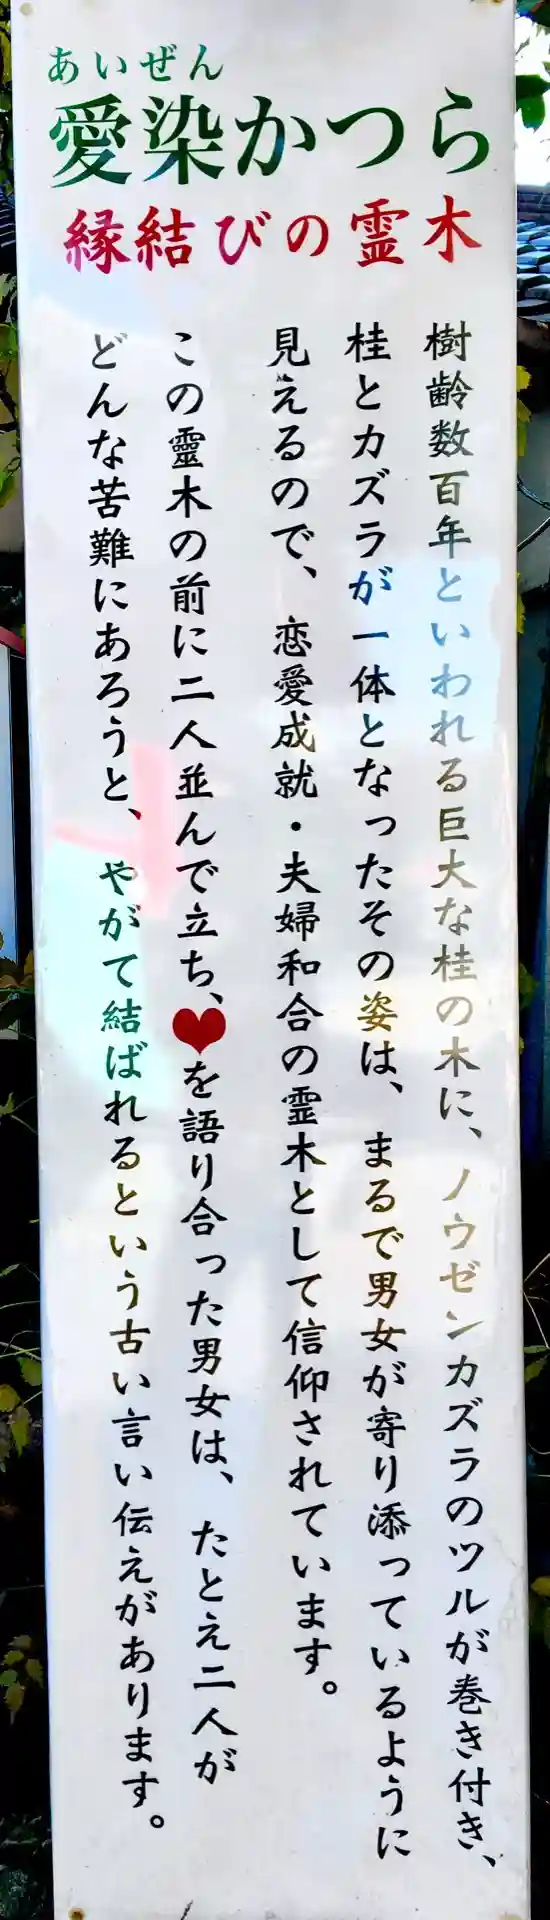 あいぜん
愛染かつら
縁結びの霊木
樹齢数百年といわれる巨大な桂の木に、ノウゼンカズラのツルが巻き付き、
桂とカズラが一体となったその姿は、まるで男女が寄り添っているように
見えるので、恋愛成就・夫婦和合の霊木として信仰されています。
この靈木の前に二人並んで立ち、❤を語り合った男女は、たとえ二人が
どんな苦難にあろうと、やがて結ばれるという古い言い伝えがあります。